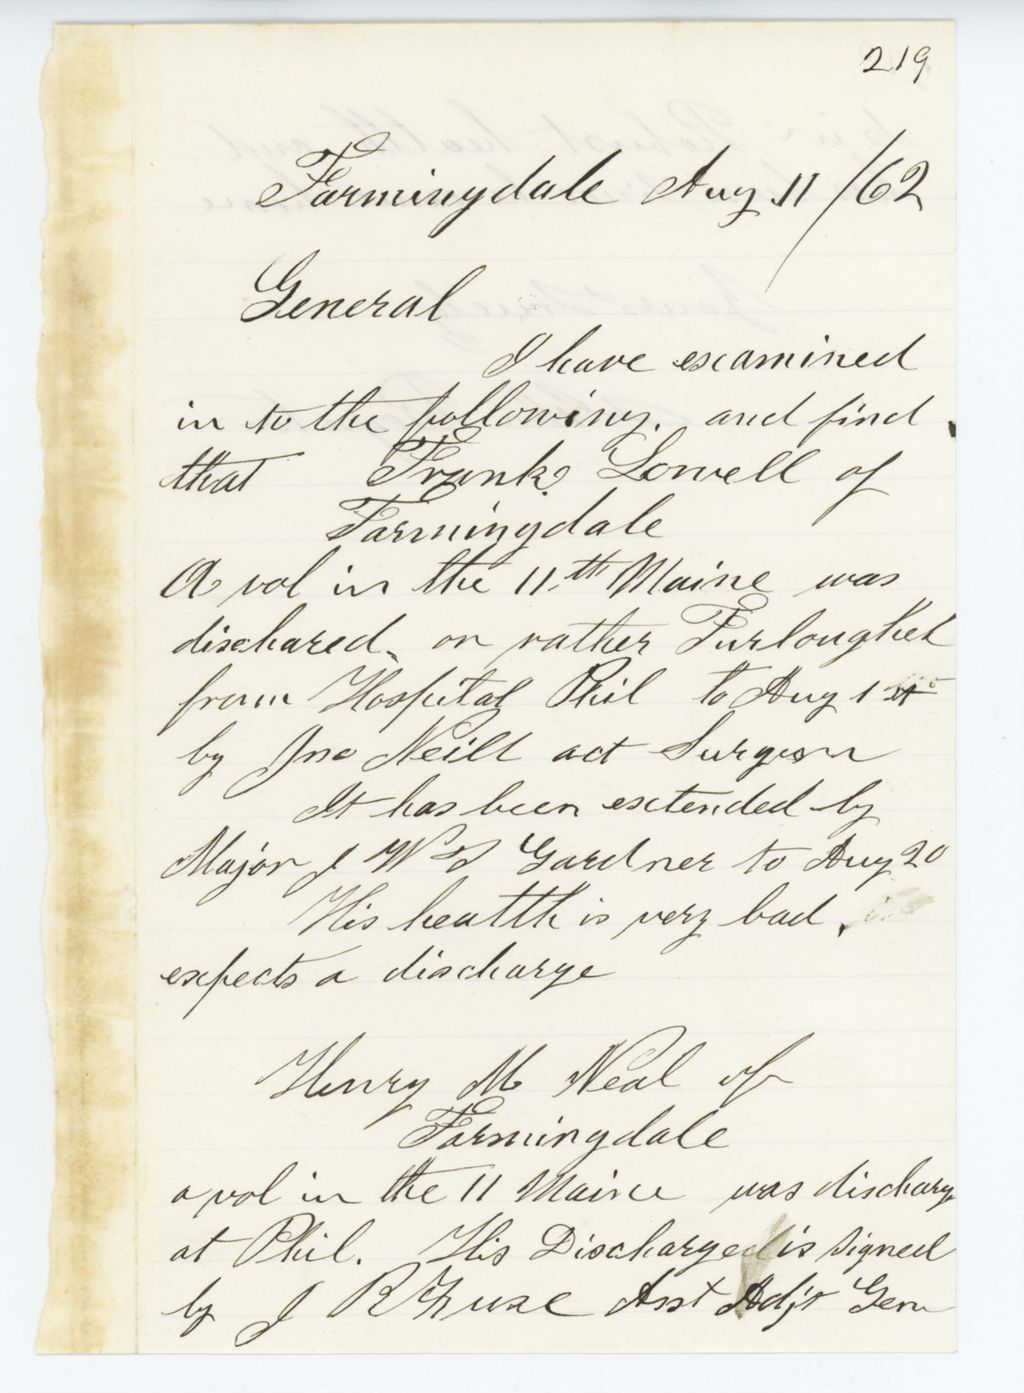 219
Farmingdale Aug 11 /62
General
I have examined
in to the following. and find
that Frank Lowell of
Farmingdale
A vol in the 11th Maine was
dischared, or rather Furloughed
from Hospital Phil to Aug 1st
by Jno Neill act Surgeon
It has been extended by
Major J W T Gardner to Aug 20
His healtth is very bad,
expects a discharge
Henry M Neal of
Farmingdale
a vol in the 11 Maine was discharg
at Phil. His Discharge is signed
by J R Asst Adjt Gen